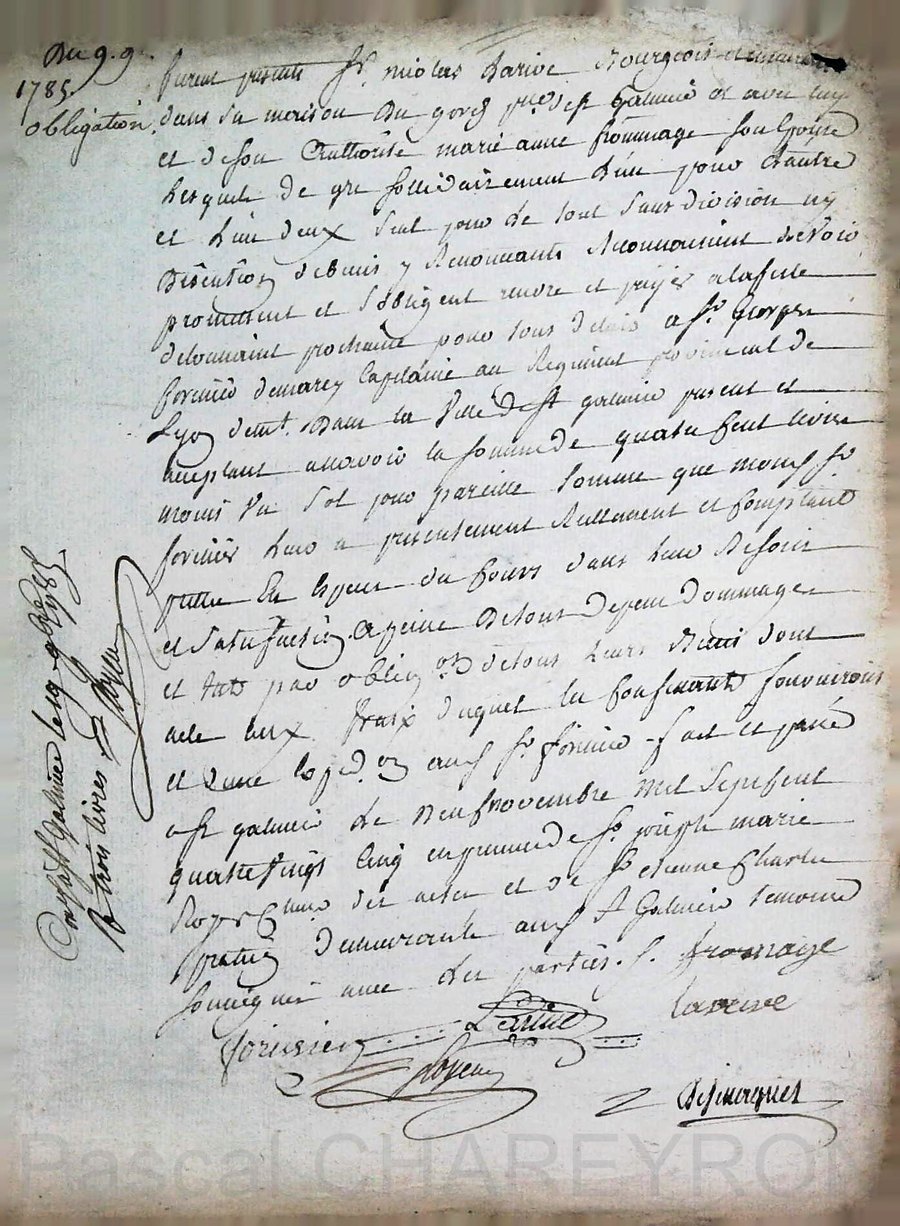 Du 9. 9
1785.
obligation
furent presents Sr. nicolas Larive Bourgeois
dans sa maison du gord St galmier et avec luy
et de son authorité marie anne frommage son epouse
lesquels de gre sollidairement l'un pour l'autre
et l'un deux seul pour le tout sans division ny
discution de biens y renoncants reconnoissent devoir
promettent et s'obligent rendre et payer a la feste
prochaine pour tous delais a Sr.
forissier demarey Capitaine au Regiment provincial de
Lyon demt. dans la ville de St galmier present et
acceptant a scavoir la somme de quatre cent livres
moins un sol pour pareille somme que
forissier leur a presentement reellement et comptant
pretté en especes du cours dans leur besoin
et satisfaction a peine de tous depens dommages
et par obligon. de tous leurs biens dont
acte aux fraix duquel
et d'une expedon. aud Sr. forissier fait et passé
a St galmier le neuf novembre mil sept cent
quatre vingt cinq en presence de Sr. joseph marie
Royer des actes et de Sr etienne Charles
praticien demeurants aud St Galmier temoins
soussignés avec les parties. f. fromage
larive
forissier
Royer
Desjurquiet
Con. a St Galmier le 19 9bre 1785
R trois livres
Royer
Pascal CHAREYRON